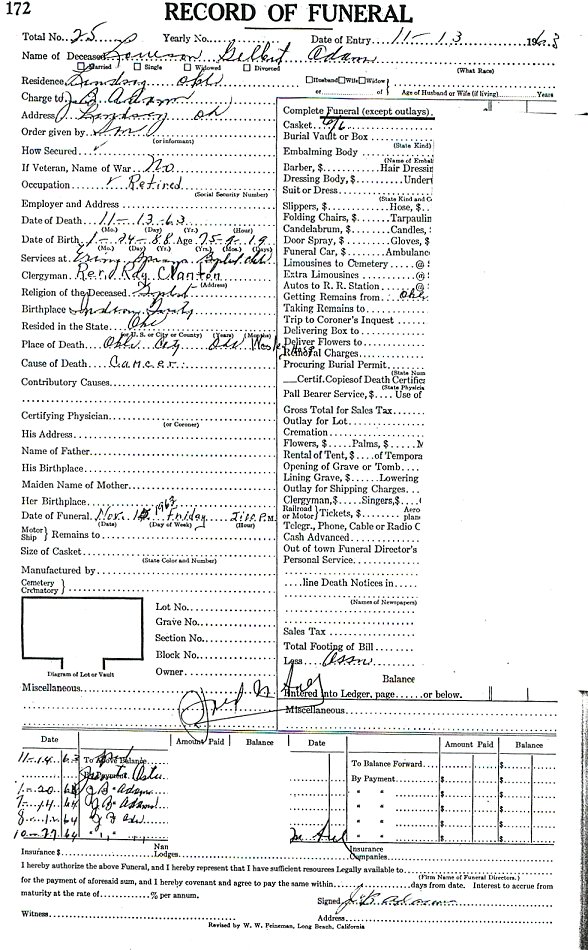 172
RECORD OF FUNERAL
Total No. 25 Yearly No. Date of Entry 11-13 1963
Name of Deceased Gilbert Adam
Married Single Widowed Divorced (What Race)
Residence Lindsay Okl Husband Wife Widow
or of Age of Husband or Wife (if living) Years
Charge to J. B. Adams
Address Lindsay Ok
Order given by Son
(or informant)
How Secured
If Veteran, Name of War No
Occupation Retired
(Social Security Number)
Employer and Address
Date of Death 11-13-63
(Mo.) (Day) (Yr.) (Hour)
Date of Birth 1-24-88 Age 75-9-19
(Mo.) (Day) (Yr.) (Yrs.) (Mos.) (Days)
Services at Erin Springs Baptist
Clergyman Rev. Ray Clanton
(Address)
Religion of the Deceased Baptist
Birthplace Indian
Resided in the State Okl
(or U. S. or City or County) (Years) (Months)
Place of Death Okl City Okl Hosp
Cause of Death Cancer
Contributory Causes
Certifying Physician
(or Coroner)
His Address
Name of Father
His Birthplace
Maiden Name of Mother
Her Birthplace
Date of Funeral Nov. 15 1963 Friday P.M.
(Date) (Day of Week) (Hour)
Motor Ship Remains to
Size of Casket
(State Color and Number)
Manufactured by
Cemetery Crematory
Lot No.
Grave No.
Section No.
Block No.
Owner
Diagram of Lot or Vault
Miscellaneous
Complete Funeral (except outlays)
Casket 6/6
Burial Vault or Box
(State Kind)
Embalming Body
(Name of Embal
Barber, $ Hair Dressin
Dressing Body, $ Under
Suit or Dress
(State Kind and C
Slippers, $ Hose, $
Folding Chairs, $ Tarpaulin
Candelabrum, $ Candles,
Door Spray, $ Gloves, $
Funeral Car, $ Ambulanc
Limousines to Cemetery @
Extra Limousines @
Autos to R. R. Station @
Getting Remains from Okl
Taking Remains to
Trip to Coroner's Inquest
Delivering Box to
Deliver Flowers to
Removal Charges
Procuring Burial Permit
(State Num
Certif. Copies of Death Certific
(State Physicia
Pall Bearer Service, $ Use of
Gross Total for Sales Tax
Outlay for Lot
Cremation
Flowers, $ Palms, $ M
Rental of Tent, $ of Tempora
Opening of Grave or Tomb
Lining Grave, $ Lowering
Outlay for Shipping Charges
Clergyman, $ Singers, $
Railroad or Motor Tickets, $ Aero plane
Telegr., Phone, Cable or Radio C
Cash Advanced
Out of town Funeral Director's
Personal Service
line Death Notices in
(Names of Newspapers)
Sales Tax
Total Footing of Bill
Less Assn
Balance
Entered into Ledger, page or below.
Miscellaneous
Date Amount Paid Balance Date Amount Paid Balance
11-14 63 To Above Balance To Balance Forward $
By Payment By Payment $
1-20 64 J B Adams " " $
7-14 64 J. B. Adams " " $
8-12 64 " " $
10-27 64 " " " " $
Insurance $ Nan Lodges Insurance Companies
I hereby authorize the above Funeral, and I hereby represent that I have sufficient resources Legally available to
(Firm Name of Funeral Directors.)
for the payment of aforesaid sum, and I hereby covenant and agree to pay the same within days from date. Interest to accrue from
maturity at the rate of % per annum. Signed J. B. Adams
Witness Address
Revised by W. W. Feineman, Long Beach, California